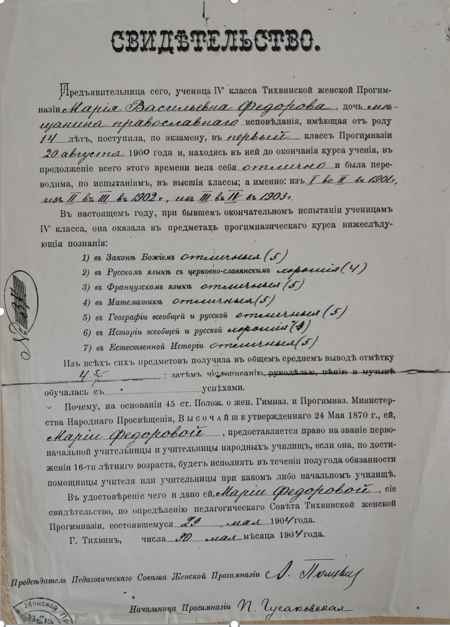 СВИДѢТЕЛЬСТВО.
Предъявительница сего, ученица IV класса Тихвинской женской Прогим-
назіи Марія Васильевна Федорова, дочь мѣ-
щанина православнаго исповѣданія, имѣющая отъ роду
14 лѣтъ, поступила, по экзамену, въ первый классъ Прогимназіи
20 августа 1900 года и, находясь въ ней до окончанія курса ученія, въ
продолженіе всего этого времени вела себя отлично и была пере-
водима, по испытаніямъ, въ высшіе классы; а именно: изъ I во II въ 1901 г,
изъ II въ III въ 1902 г., изъ III въ IV въ 1903 г.
Въ настоящемъ году, при бывшемъ окончательномъ испытаніи ученицамъ
IV класса, она оказала въ предметахъ прогимназическаго курса нижеслѣду-
ющія познанія:
1) въ Законѣ Божіемъ отличныя (5)
2) въ Русскомъ языкѣ съ церковно-славянскимъ хорошія (4)
3) въ Французскомъ языкѣ отличныя (5)
4) въ Математикѣ отличныя (5)
5) въ Географіи всеобщей и русской отличныя (5)
6) въ Исторіи всеобщей и русской хорошія
7) въ Естественной Исторіи отличныя (5)
№
Изъ всѣхъ сихъ предметовъ получила въ общемъ среднемъ выводѣ отмѣтку
затѣмъ чистописанію, рукодѣлью, пѣнію и музыкѣ
обучалась съ успѣхами.
Почему, на основаніи 45 ст. Полож. о жен. Гимназ. и Прогимназ. Министер-
ства Народнаго Просвѣщенія, Высочайше утвержденнаго 24 Мая 1870 г., ей,
Маріи Федоровой, предоставляется право на званіе перво-
начальной учительницы и учительницы народныхъ училищъ, если она, по дости-
женіи 16-ти лѣтняго возраста, будетъ исполнять въ теченіи полугода обязанности
помощницы учителя или учительницы при какомъ либо начальномъ училищѣ.
Въ удостовѣреніе чего и дано ей, Маріи Федоровой, сіе
свидѣтельство, по опредѣленію педагогическаго Совѣта Тихвинской женской
Прогимназіи, состоявшемуся 29 мая 1904 года.
Г. Тихвинъ, числа 30 мая мѣсяца 1904 года.
Предсѣдатель Педагогическаго Совѣта Женской Прогимназіи А.
Начальница Прогимназіи П. Гусаковская